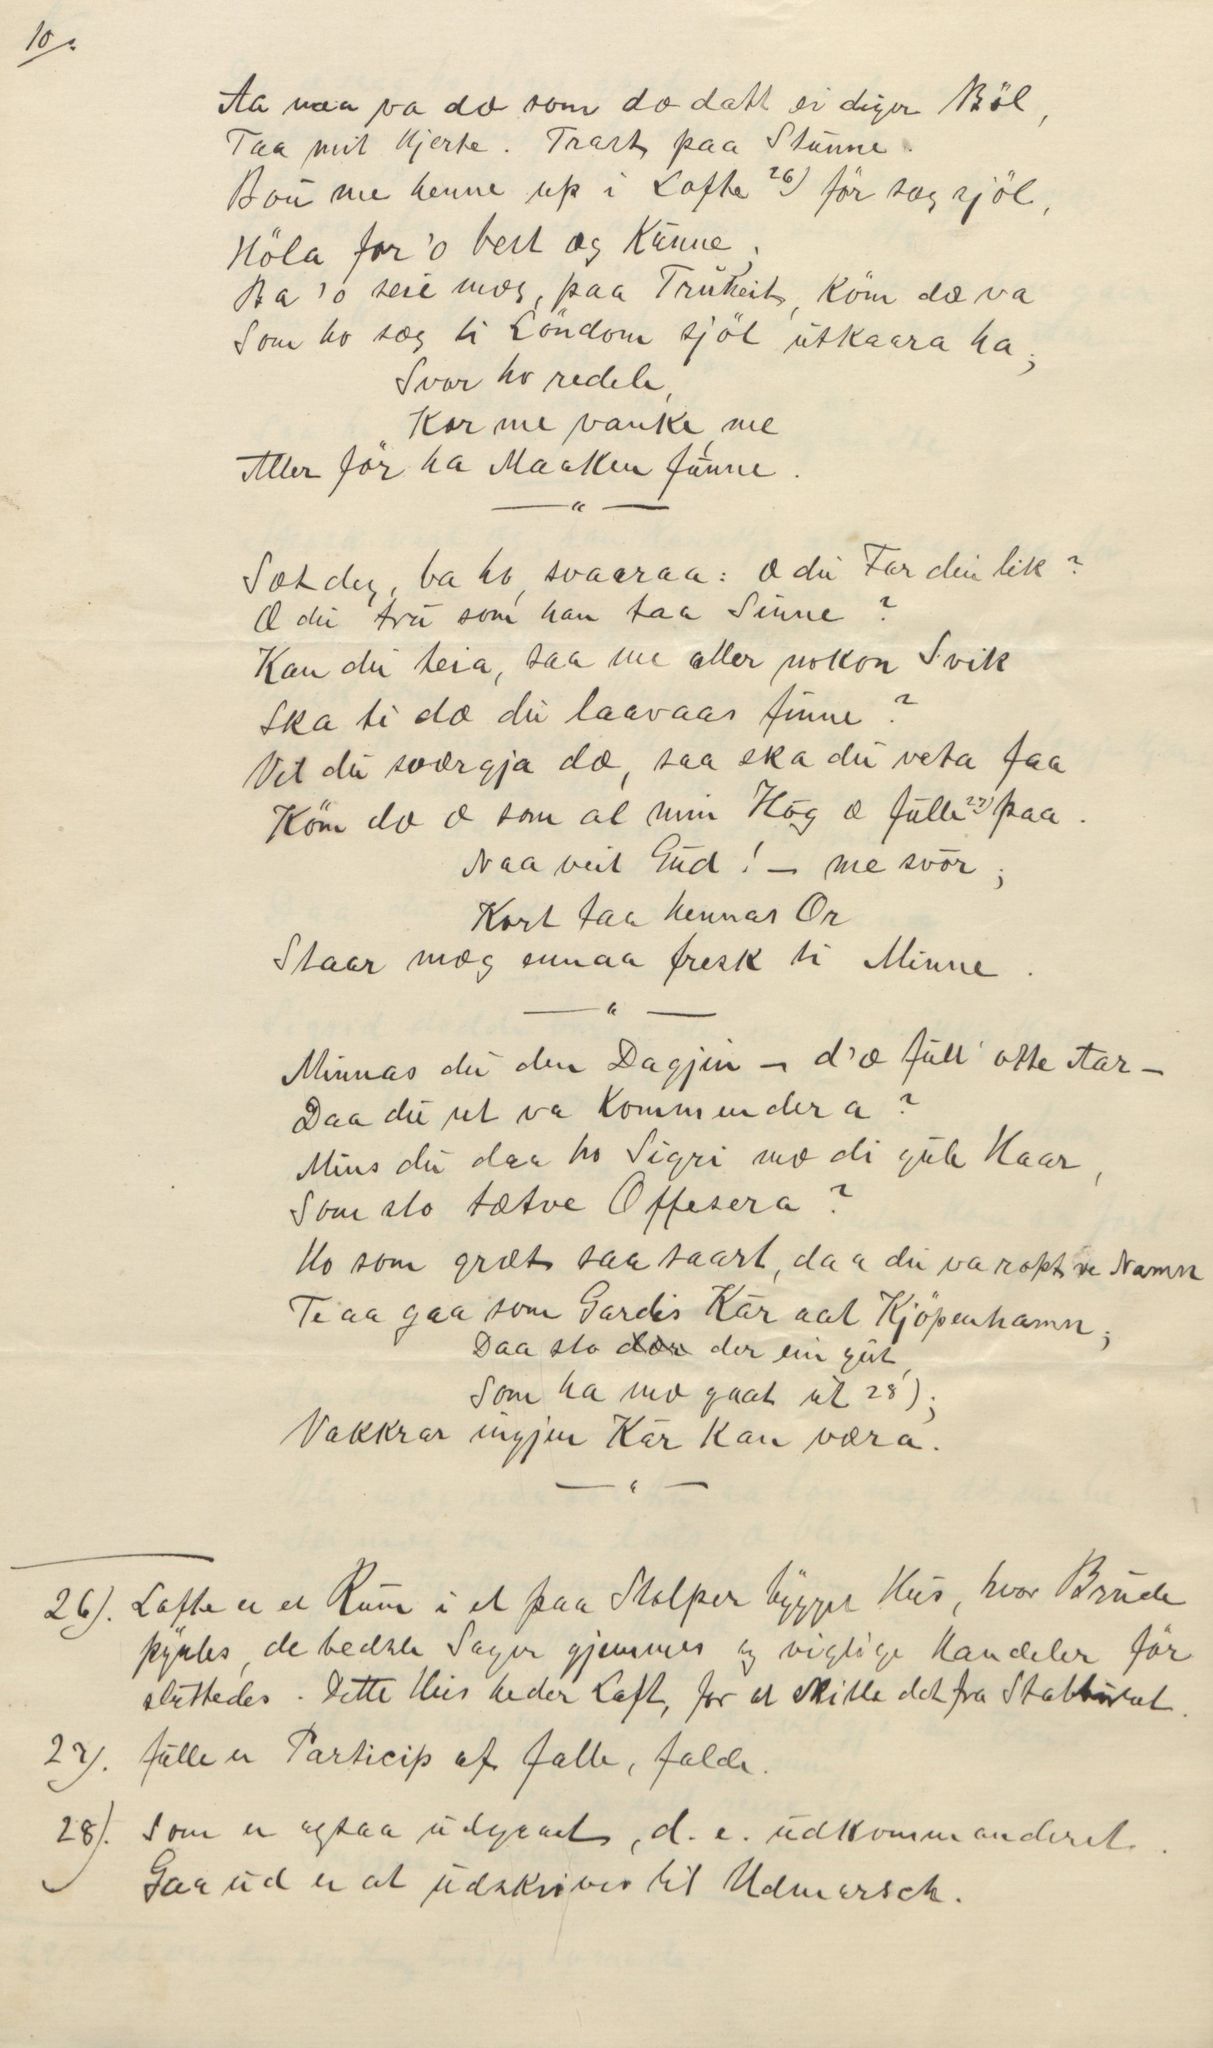 10.
Aa naa va dæ som dæ datt ei diger Böl,
Taa mit Hjerte. Trast paa Stunne.
Bou me henne up i Lofte 26) för sæg sjöl,
Höla for 'o best æg Kunne,
Ba 'o seie mæg, paa Truheit, Köm dæ va
Som ho sæg ti Löndom sjöl utkaara ha;
Svor ho redele,
Kor me vanke me
Aller för ha Maaken funne.
— " —
Sæt deg, ba ho, svaaraa: æ du Far din lik?
Æ du tru som han taa Sinne?
Kan du teia, saa me aller nokon Svik
Ska ti dæ du laavaas finne?
Vil du sværgja dæ, saa ska du veta faa
Köm dæ æ som al min Hog æ fulle 27) paa.
Naa veit Gud! — me svor;
Kort taa hennar Or
Staar mæg ennaa fresk ti Minne.
— " —
Minnas du den Dagjin — d'æ full otte Aar —
Daa du ut va Kommendera?
Mins du daa ho Sigri mæ di gule Haar,
Som sto tætve Offesera?
Ho som græt saa saart, daa du va ropt ve Namn
Te aa gaa som Gardis Kar aat Kjöpenhamn;
Daa sto der ein gut,
Som ha mæ gaat ut 28);
Vakkrar ingjin Kar kan væra.
— " —
26). Lofte er et Rum i et paa Stolper bygget Hus, hvor Brude
pyntes, de bedste Sager gjemmes og vigtige Handeler för
sluttedes. Dette Hus heder Loft, for at skille det fra Stabburet.
27). fulle er Particip af falle, falde.
28). Som er ogsaa udgaaet, d. e. udkommanderet.
Gaa ud er at udskrives til Udmarsch.